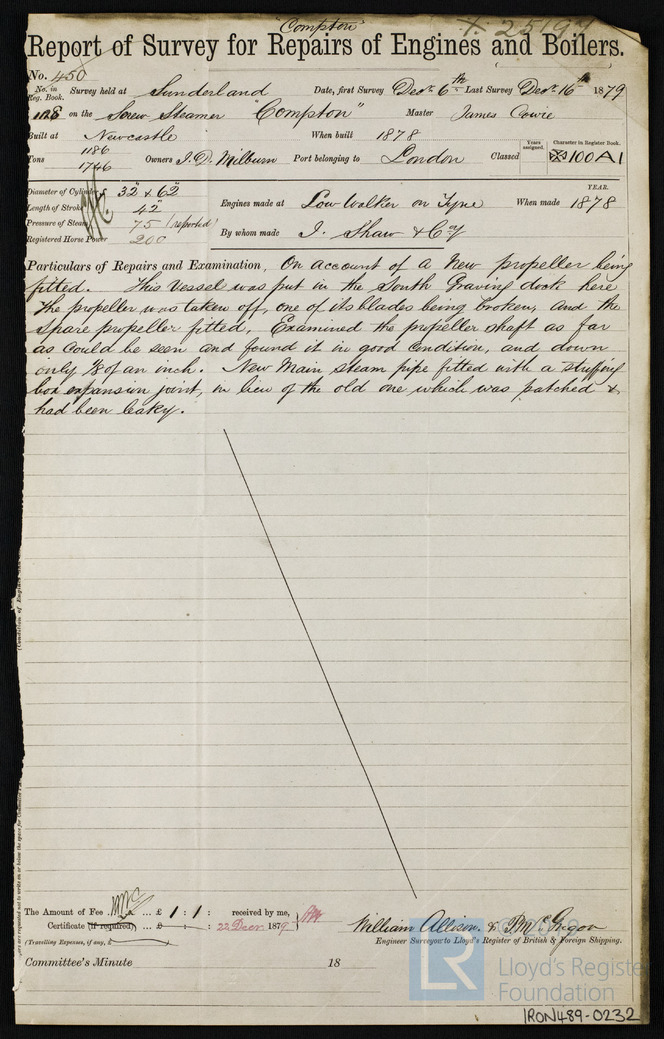 "Compton"
x. 25197
Report of Survey for Repairs of Engines and Boilers.
No. 450
No. in Reg. Book. Survey held at Sunderland Date, first Survey Decr 6th Last Survey Decr 16th 1879
1126 on the Screw Steamer "Compton" Master James Cowie
Built at Newcastle When built 1878
Tons 1186 1746 Owners J. D. Milburn Port belonging to London Classed Years assigned. Character in Register Book. 100A1
Diameter of Cylinders 32" & 62"
Length of Stroke 42"
Pressure of Steam 75 (reported)
Registered Horse Power 200
Engines made at Low Walker on Tyne When made YEAR. 1878
By whom made J. Shaw & Coy
Particulars of Repairs and Examination, On account of a New propeller being
fitted. This Vessel was put in the South Graving dock here
the propeller was taken off, one of its blades being broken, and the
Spare propeller fitted, Examined the propeller shaft as far
as could be seen and found it in good Condition, and down
only 1/8 of an inch. New Main steam pipe fitted with a stuffing
box expansion joint, in lieu of the old one which was patched &
had been leaky.
The Amount of Fee ... £ 1 : 1 : received by me,
Certificate (if required) ... £ : : 22 Decr 1879
(Travelling Expenses, if any, £ )
William Allison. & P. McGregor
Engineer Surveyor to Lloyd's Register of British & Foreign Shipping.
Committee's Minute 18
LR
Lloyd's Register
Foundation
IRON489-0232